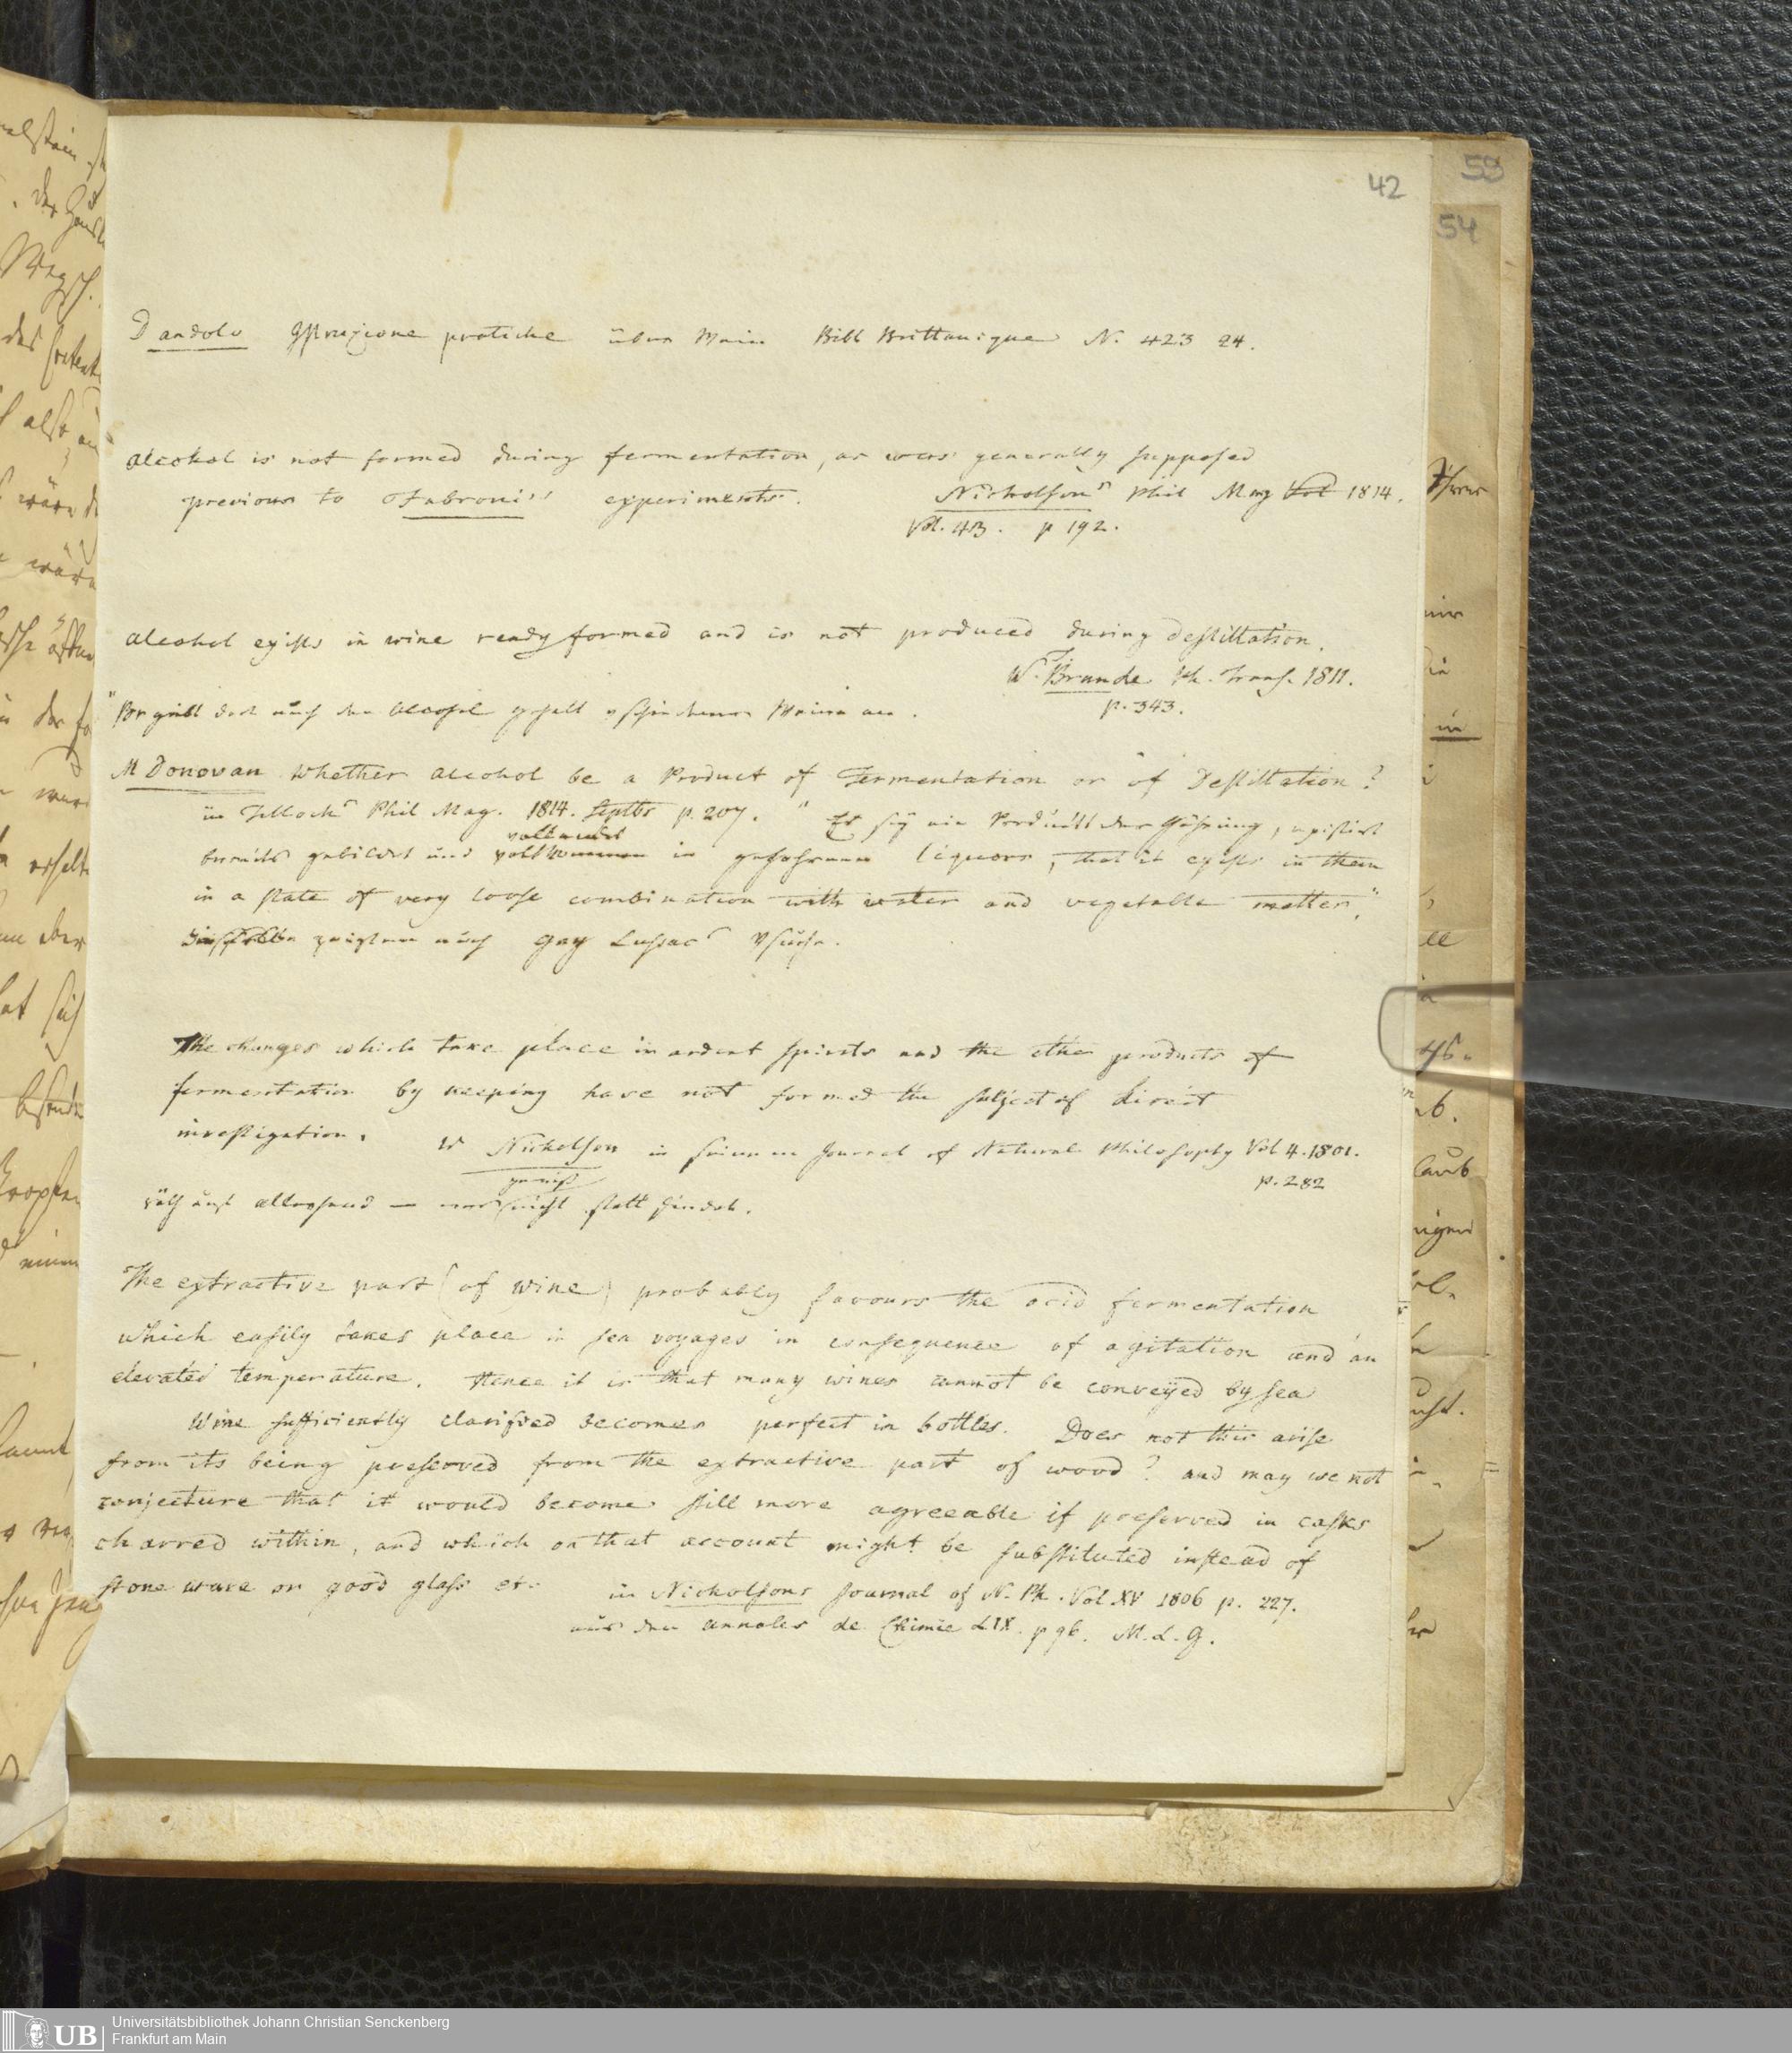 42
59
54
Dandolo Istruzione pratiche über Wein Bibl Brittanique N. 423 24.
alcohol is not formed during fermentation, as was generally supposed
previous to Fabroni's experiments. Nicholson's Phil Mag Vol 1814.
Vol. 43. p 192.
alcohol exists in wine ready formed and is not produced during destillation.
W. T. Brande Ph. Trans. 1811.
p. 343.
Br giebt dort auch den Alcohol gehalt vschiedener Weine an.
M Donovan Whether alcohol be a Product of Fermentation or of Destillation?
in Tilloch's Phil Mag. 1814. Septbr p. 207. "Es sey ein Produckt der Gährung, existirt
vollendet
bereits gebildet und vollkommen in gegohrnen liquors, that it exists in them
in a state of very loose combination with water and vegetable matter."
Dasselbe zeigten auch Gay Lussac's Vsuche.
The changes which take place in ardent spirits and the other products of
fermentation by keeping have not formed the subject of direct
investigation. W Nicholson in seinem Journal of Natural Philosophy Vol 4. 1801.
p. 282
gewiß
nicht statt findet.
The extractive part (of wine) probably favours the acid fermentation
which easily takes place in sea voyages in consequence of agitation and an
elevated temperature. Hence it is that many wines cannot be conveyed by sea
Wine sufficiently clarified becomes perfect in bottles. Does not this arise
from its being preserved from the extractive part of wood? and may we not
conjecture that it would become still more agreeable if preserved in casks
charred within, and which on that account might be substituted instead of
stone ware or good glass etc. in Nicholsons Journal of N. Ph. Vol. XV 1806 p. 227.
aus den annales de Chimie LIX. p 96. M. L. G.
Universitätsbibliothek Johann Christian Senckenberg
UB Frankfurt am Main